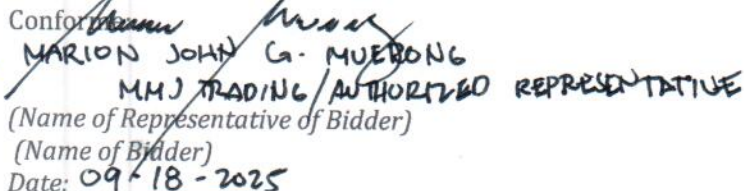 Conforme:
MARION JOHN G. MUERONG
MMJ TRADING/AUTHORIZED REPRESENTATIVE
(Name of Representative of Bidder)
(Name of Bidder)
Date: 09-18-2025